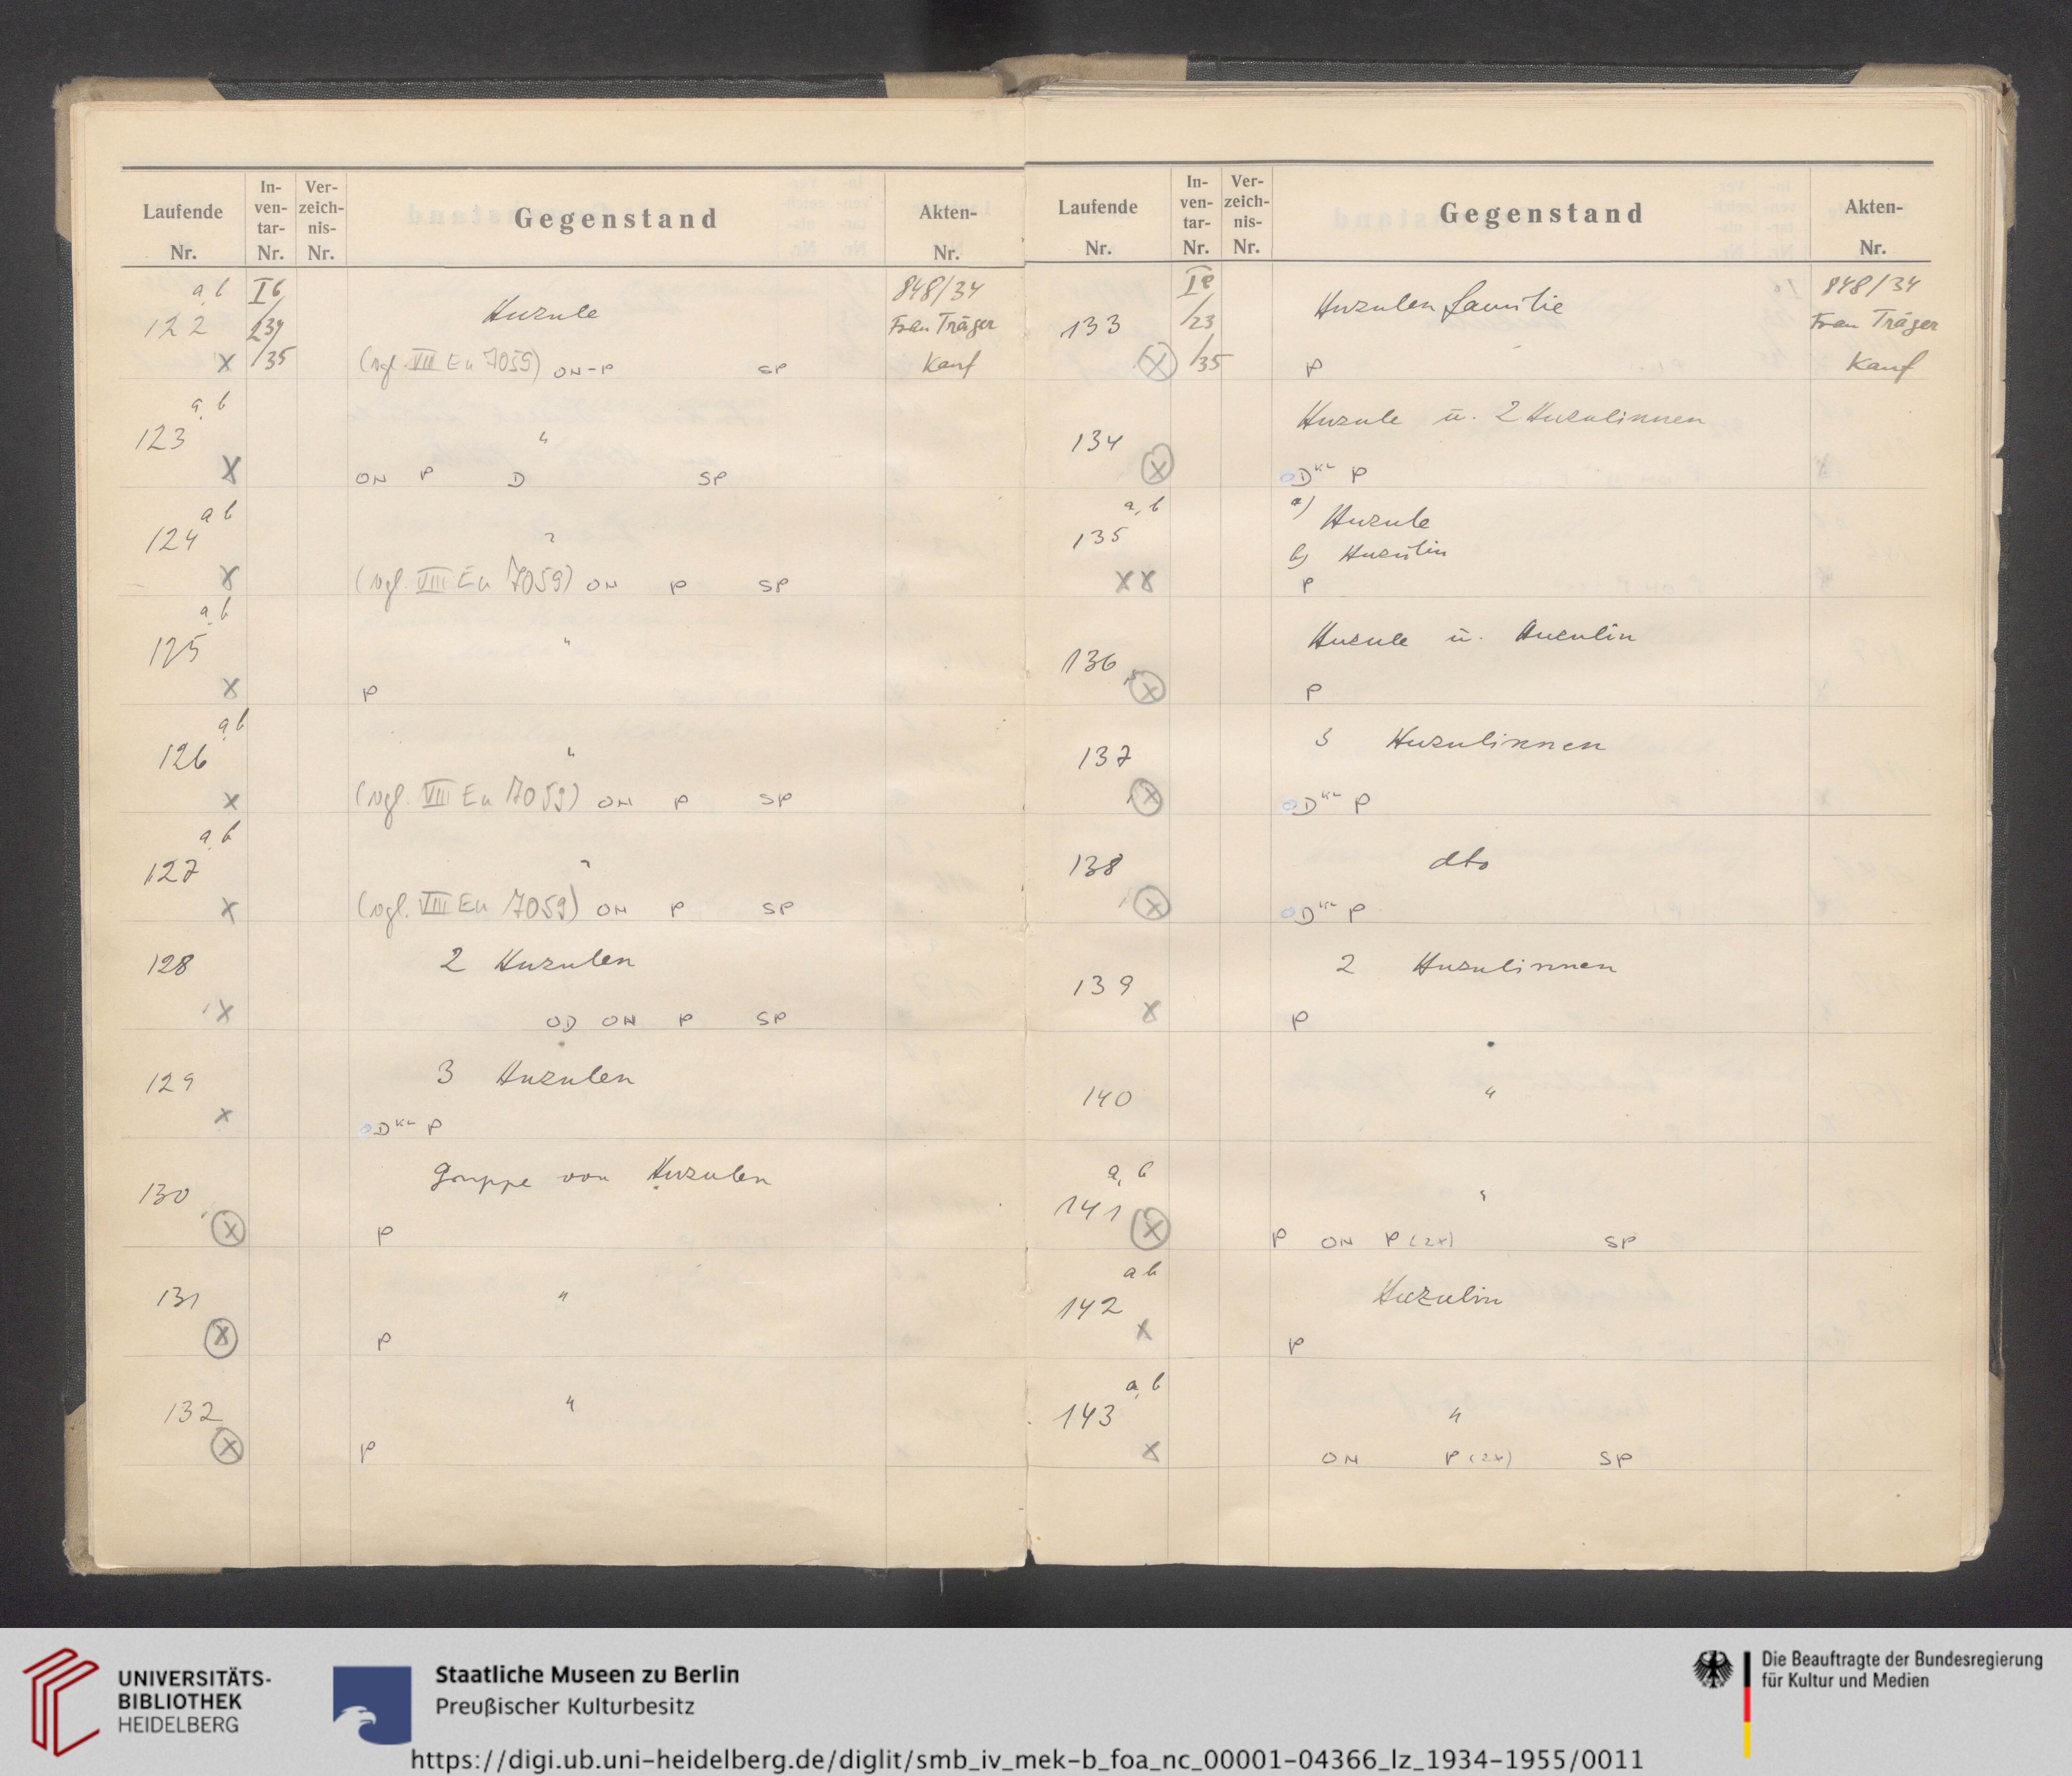 Laufende Nr. In-ven-tar-Nr. Ver-zeich-nis-Nr. Gegenstand Akten-Nr.
a, b
122 X
Huzule
848/34
Frau Träger
Kauf
ON-P SP
a, b
123 X
"
ON P D SP
a b
124 X
"
(vgl. VIII Eu 7059) ON P SP
a, b
125 X
"
P
a, b
126 X
"
(vgl. VIII Eu 7059) ON P SP
a, b
127 X
"
(vgl. VIII Eu 7059) ON P SP
128 X
2 Huzulen
OD ON P SP
129 X
3 Huzulen
OD KL P
130 X
Gruppe von Huzulen
P
131 X
"
P
132 X
"
P
Laufende Nr. In-ven-tar-Nr. Ver-zeich-nis-Nr. Gegenstand Akten-Nr.
133 X
/23
/35
Huzulenfamilie
848/34
Frau Träger
Kauf
P
134 X
Huzule u. 2 Huzulinnen
OD KL P
a, b
135 XX
a) Huzule
b) Huzulin
P
136 X
Huzule u. Huzulin
P
137 X
3 Huzulinnen
OD KL P
138 X
dto
OD KL P
139 X
2 Huzulinnen
P
140
"
a, b
141 X
"
P ON P (2x) SP
a b
142 X
Huzulin
P
a, b
143 X
"
ON P (2x) SP
UNIVERSITÄTS-
BIBLIOTHEK
HEIDELBERG
Staatliche Museen zu Berlin
Preußischer Kulturbesitz
Die Beauftragte der Bundesregierung
für Kultur und Medien
https://digi.ub.uni-heidelberg.de/diglit/smb_iv_mek-b_foa_nc_00001-04366_lz_1934-1955/0011